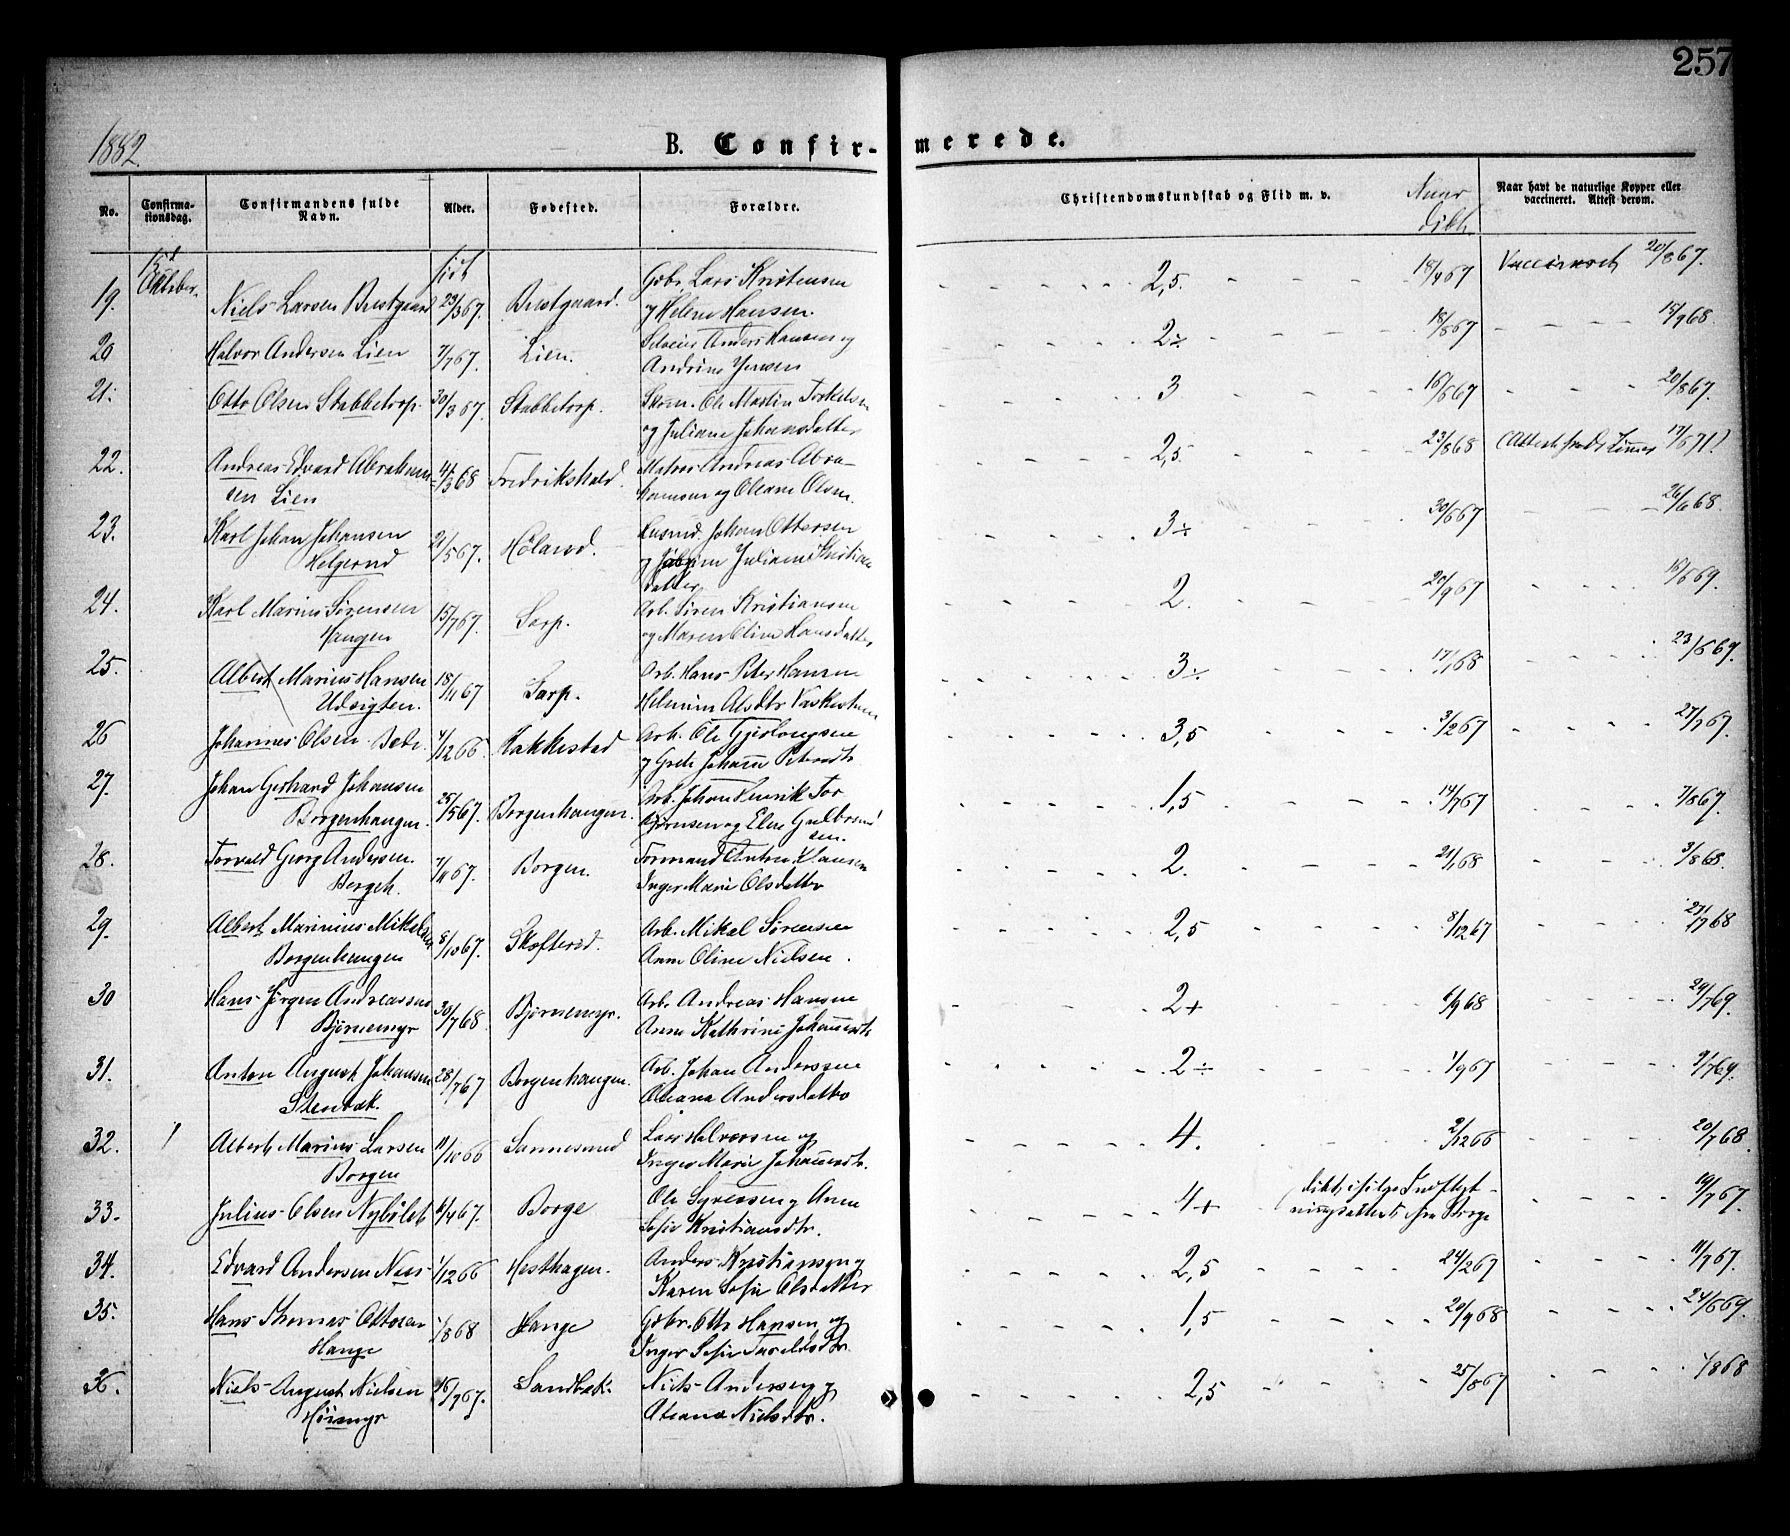 257
1882.
B. Confir-merede.
No.
Confirma-
tionsdag.
Confirmandens fulde
Navn.
Alder.
Fødested.
Forældre.
Christendomskundskab og Flid m. v.
Naar
døbt.
Naar havt de naturlige Kopper eller
vaccineret. Attest derom.
Oktober
født
19. Niels Larsen Brustgaard 23/3 67. Brustgaard. Gbr. Lars Kristensen
og Helene Hansen. 2,5. 18/4 67 Vaccineret 20/8 67.
20 Halvor Andersen Lien 7/7 67. Lien. Anders Hansen og
Andrine Jensen 2÷ 18/8 67 15/9 68.
21. Otto Olsen Stabbetorp. 30/3 67. Stabbetorp. Ole Martin Torkelsen
og Juliane Johansdatter 3 16/6 67 20/8 67.
22. Andreas Edvard Abraham-
sen Lien 4/3 68 Fredrikshald. Matros Andreas Abra-
hamsen og Oleane Olsen. 2,5. 23/8 68 17/6 71
23. Karl Johan Johansen
Helgerød 21/5 67. Hølarød. Husmd. Johan Ottersen
og Juliane Kristian
datter 3÷ 30/6 67 26/6 68.
24. Karl Marius Sørensen
Haugen 15/7 67. Sarp. Arb. Søren Kristiansen
og Maren Oline Hansdatter, 2. 20/9 67 16/6 69.
25. Albert Marius Hansen
Udsigten. 18/11 67 Sarp. Arb. Hans Peter Hansen
Helmine Olsdtr. 3÷ 17/1 68 23/6 69.
26 Johannes Olsen 4/12 66 Rakkestad Arb. Ole
og Grete Johanne 3,5 3/2 67 27/7 67.
27. Johan Gerhard Johansen
Borgenhaugen. 25/5 67. Borgenhaugen. Arb. Johan Henrik Tor
bjørnsen og Elen Gulbrand
sen. 1,5 14/7 67 7/8 67.
28. Torvald Georg Andersen.
Borgen. 7/11 67. Borgen. Formand Anton Hansen
Inger Marie Olsdatter 2. 21/1 68 3/8 68.
29. Albert Marinius Mikelsen
Borgenhaugen 8/10 67. Skofterød. Arb. Mikal Sørensen
Anne Oline Nielsen. 2,5 8/12 67 68
30 Hans Jørgen Andreassen
Bjørnemyr 30/7 68. Bjørnemyr. Arb. Andreas Hansen
Anne Kathrine Johannesdtr 2+ 6/9 68 29/7 69.
31. Anton August Johansen
Stenbæk. 28/7 67 Borgenhaugen. Arb. Johan Anderssen
Oleana Andersdatter 2÷ 1/9 67 9/7 69.
32. Albert Marius Larsen
Borgen 11/10 66 Sannesund Lars Halvorsen og
Inger Marie Johannesdtr. 4. 2/12 66 20/7 68.
33. Julius Olsen Nybølet 11/4 67. Borge Ole Syversen og Anne
Sofie Kristiansdtr. 4+ døbt ifølge Indflyt-
ningsattest fra Borge 19/7 67.
34. Edvard Andersen Næs 1/12 66 Hesthagen. Anders Kristiansen og
Karen Sofie Olsdatter 2,5 24/2 67 11/7 67.
35. Hans Thomas Ottosen
Hauge 1/8 68 Hauge Gbr. Otto Hansen og
Inger Sofie 1,5 20/9 68 24/6 69.
36. Niels August Nielsen
Høimyr 16/7 67. Sandbæk. Niels Andersen og
Oleana Nielsdtr. 2,5 25/8 67 1/8 68